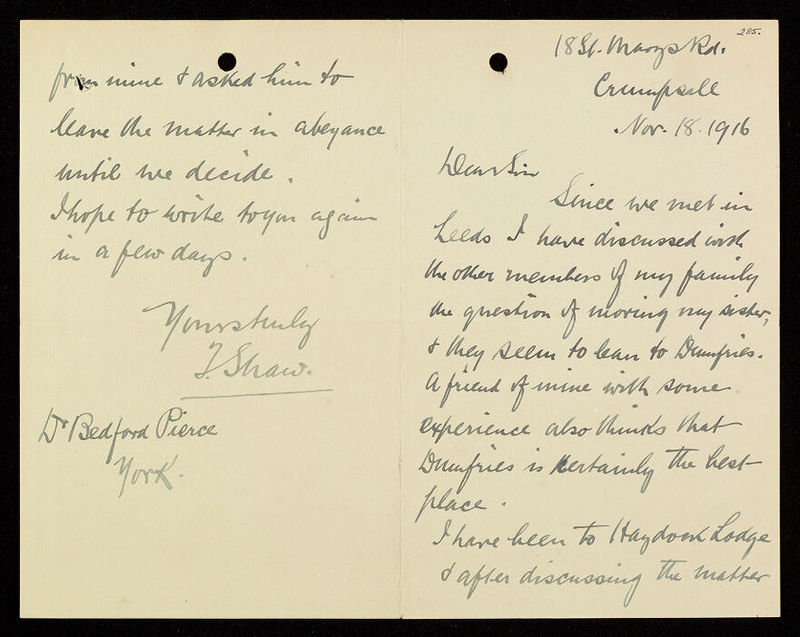 285.
18 St. Marys Rd.
Crumpsall
Nov. 18. 1916
Dear Sir
Since we met in
Leeds I have discussed with
the other members of my family
the question of moving my sister,
& they seem to lean to Dumfries.
A friend of mine with some
experience also thinks that
Dumfries is certainly the best
place.
I have been to Haydock Lodge
& after discussing the matter
from mine & asked him to
leave the matter in abeyance
until we decide.
I hope to write to you again
in a few days.
Yours truly
F. Shaw.
Dr Bedford Pierce
York.